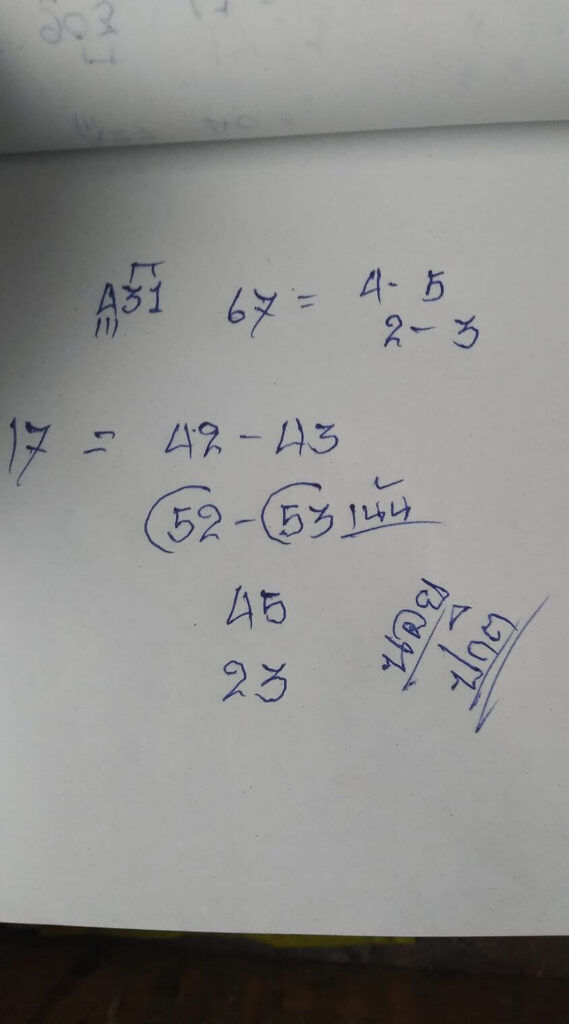 431 67 = 4 - 5
2 - 3
17 = 42 - 43
52 - 53 เน้น
45
23